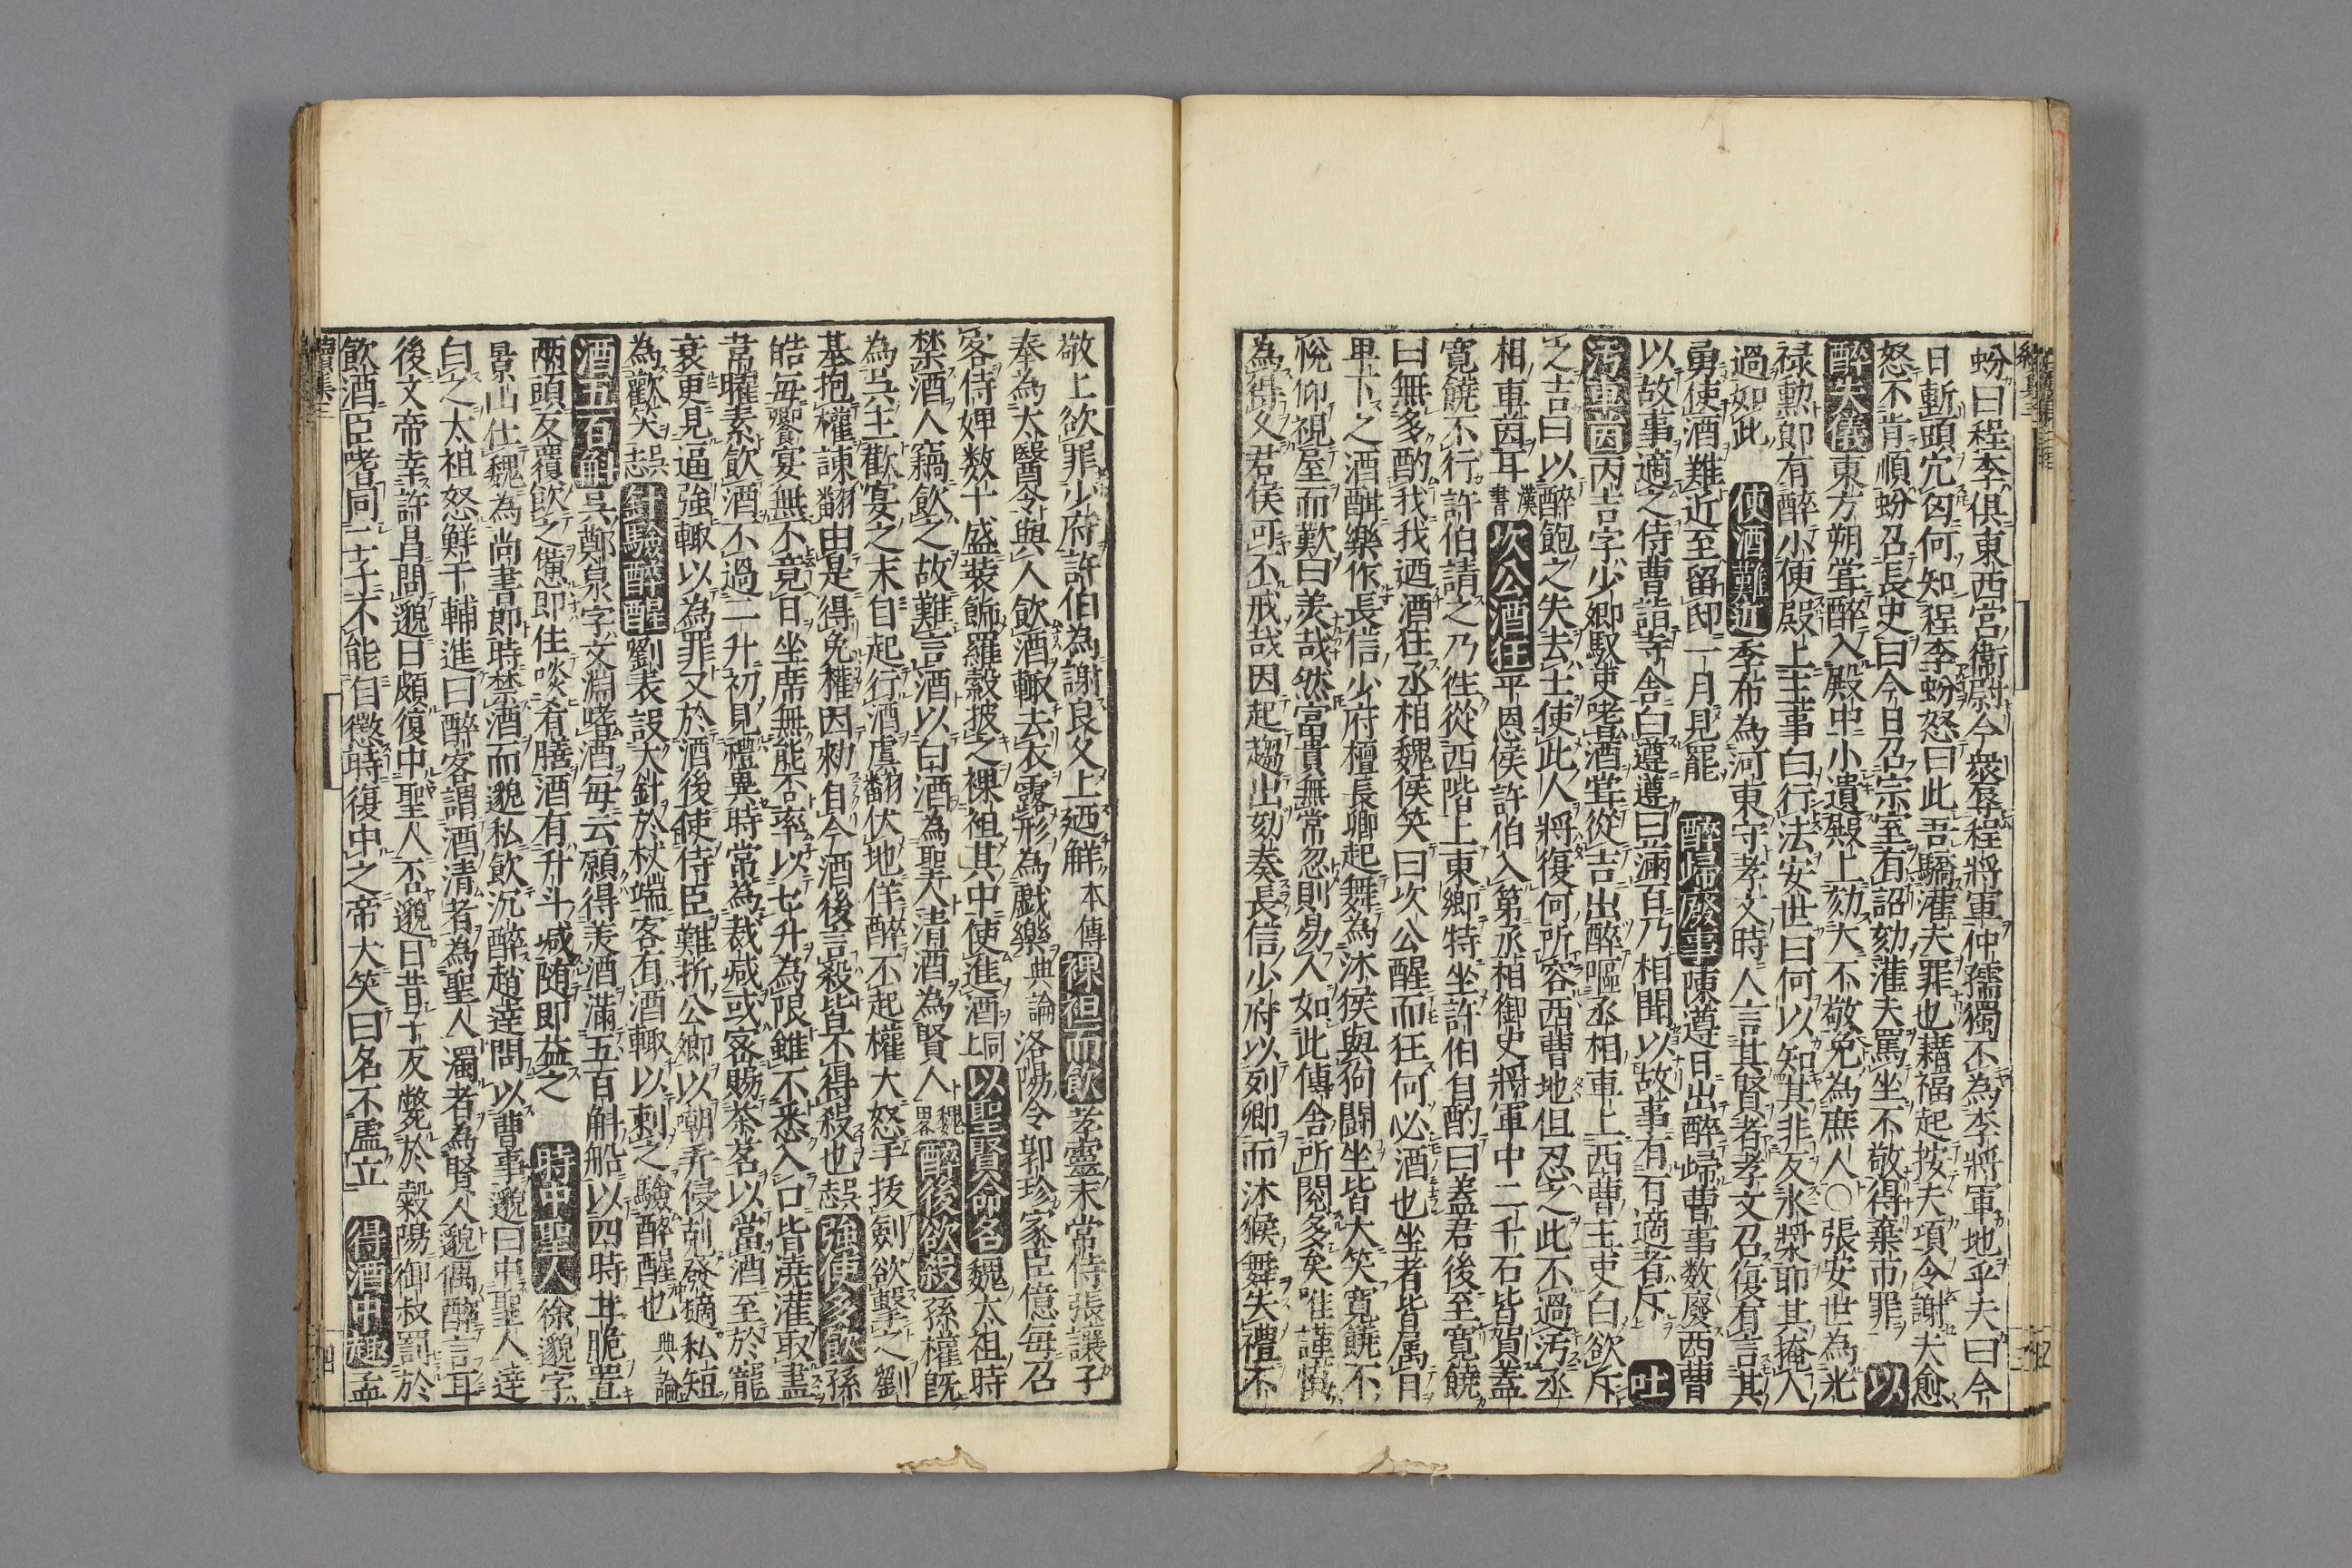 蚡曰程李俱東西宮衞尉今衆辱程將軍仲孺獨不為李將軍地乎夫曰今
日斬頭穴匈何知程李蚡怒曰此吾驕灌夫罪也藉福起按夫項令謝夫愈
怒不肯順蚡召長史曰今日召宗室有詔劾灌夫罵坐不敬得棄市罪 以
醉失儀東方朔甞醉入殿中小遺殿上劾大不敬免為庶人〇張安世為光
禄勲郎有醉小便殿上主事白行法安世曰何以知其非反水漿耶其掩人
過如此 使酒難近季布為河東守孝文時人言其賢者孝文召復有言其
勇使酒難近至留邸一月見罷 醉歸廢事陳遵日出醉歸曹事数廢西曹
以故事適之侍曹詣寺舎白遵遵曰滿百乃相聞以故事有百適者斥 吐
汚車茵丙吉字少卿馭吏嗜酒甞從吉出醉嘔丞相車上西曹主吏白欲斥
之吉曰以醉飽之失去士使此人將復何所容西曹地但忍之此不過汚丞
相車茵耳漢書坎公酒狂平恩侯許伯入第丞相御史將軍中二千石皆賀蓋
寛饒不行許伯請之乃徃從西階上東鄉特坐許伯自酌曰蓋君後至寛饒
曰無多酌我我迺酒狂丞相魏侯笑曰坎公醒而狂何必酒也坐者皆属目
畢下之酒酣樂作長信少府檀長卿起舞為沐侯與狗鬪坐皆大笑寛饒不
恱仰視屋而歎曰美哉然富貴無常忽則易人如此傳舎所閲多矣唯謹慎
為得久君侯可不戒哉因起趨出劾奏長信少府以列卿而沐猴舞失禮不
敬上欲罪少府許伯為謝良久上廼觧本傳裸袒而飲孝靈末常侍張讓子
奉為太醫令與人飲酒輙去衣露形為戯樂典論 洛陽令郭珍家臣億毎召
客侍婢数十盛装飾羅縠披之裸袒其中使進酒同上以聖賢命名魏太祖時
禁酒人竊飲之故難言酒以白酒為聖人清酒為賢人魏畧醉後欲殺孫權既
為呉主歡宴之末自起行酒虞翻伏地佯醉不起權大怒手抜劍欲擊之劉
基抱權諌翻由是得免權因勑自今酒後言殺皆不得殺也呉志強使多飲孫
皓毎饗宴無不竟日坐席無能否率以七升為限雖不悉入口皆澆灌取盡
韋曜素飲酒不過二升初見禮異時常為裁减或宻賜茶茗以當酒至於寵
衰更見逼強輙以為罪又於酒後使侍臣難折公卿以嘲弄侵尅發摘私短
為歡笑呉志針驗醉醒劉表設大針於杖端客有酒輙以刺之驗醉醒也典論
酒五百斛呉鄭泉字文淵嗜酒毎云願得美酒滿五百斛船以四時甘脆置
兩頭反覆飲之憊即住啖肴膳酒有升斗减随即益之 時中聖人徐邈字
景山仕魏為尚書郎時禁酒而邈私飲沉醉趙達問以曹事邈曰中聖人達
白之太祖怒鮮于輔進曰醉客謂酒清者為聖人濁者為賢人邈偶醉言耳
後文帝幸許昌問邈曰頗復中聖人否邈曰昔子反斃於榖陽御叔罰於
飲酒臣嗜同二子不能自懲時復中之帝大笑曰名不虚立 得酒中趣孟